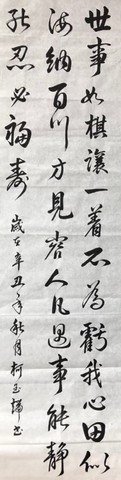 世事如棋讓一着不為虧我心田似
海納百川方見容人凡遇事能静
能忍必福壽 歲在辛丑年秋月柯玉书